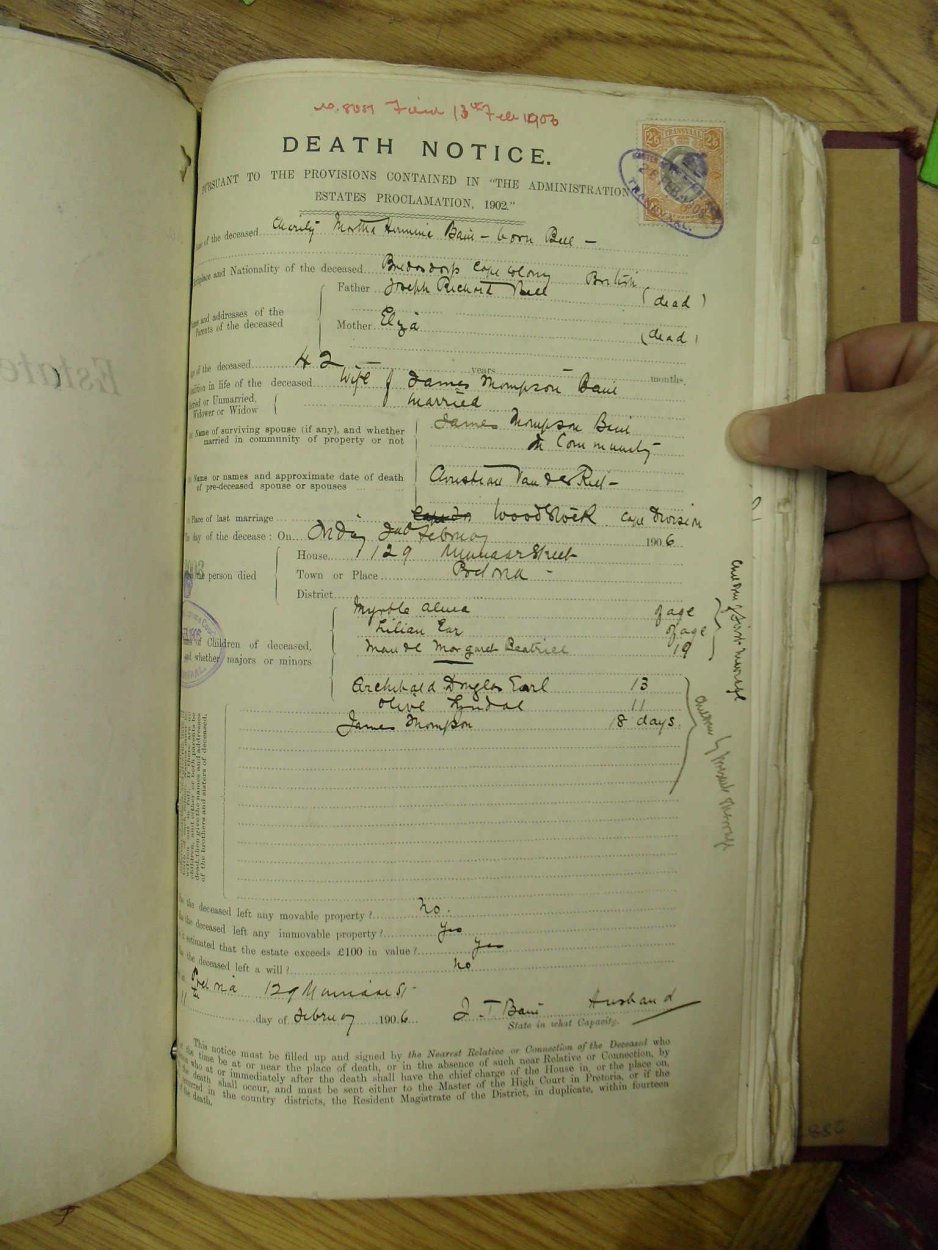 Filed 13th Feb 1906
DEATH NOTICE.
PURSUANT TO THE PROVISIONS CONTAINED IN "THE ADMINISTRATION
ESTATES PROCLAMATION, 1902."
TRANSVAAL
2/6 2/6
TRANSVAAL.
of the deceased Charity Martha Hermine Bain - born Bell -
and Nationality of the deceased Bredasdorp Cape Colony British
Father Joseph Richard Bell (dead)
and addresses of the
Parents of the deceased
Mother Eliza (dead)
of the deceased 42 years months
in life of the deceased Wife of James Thompson Bain
or Unmarried,
Widower or Widow married
Name of surviving spouse (if any), and whether
married in community of property or not
James Thompson Bain
in Community
Name or names and approximate date of death
of pre-deceased spouse or spouses
Christian Van der Riet -
Place of last marriage Woodstock Cape Division
day of the decease: On 2nd February 1906
House 129
the person died
Town or Place Pretoria -
District
of Children of deceased,
and whether majors or minors
Myrtle Alma of age
Lilian of age
Maude Margaret Beatrice 19
Children of first marriage
Archibald Douglas Earl 13
Olive 11
James Thompson 18 days
Children by present marriage
dead, then give the names and addresses
of the brothers and sisters of deceased.
the deceased left any movable property? no.
the deceased left any immovable property? yes
estimated that the estate exceeds £100 in value? yes
the deceased left a will? no
Pretoria 129
day of February 1906 J. T. Bain Husband
State in what Capacity.
This notice must be filled up and signed by the Nearest Relative or Connection of the Deceased who
the time be at or near the place of death, or in the absence of such near Relative or Connection, by
who at or immediately after the death shall have the chief charge of the House in, or the place on,
the death shall occur, and must be sent either to the Master of the High Court in Pretoria, or if the
occurred in the country districts, the Resident Magistrate of the District, in duplicate, within fourteen
the death.